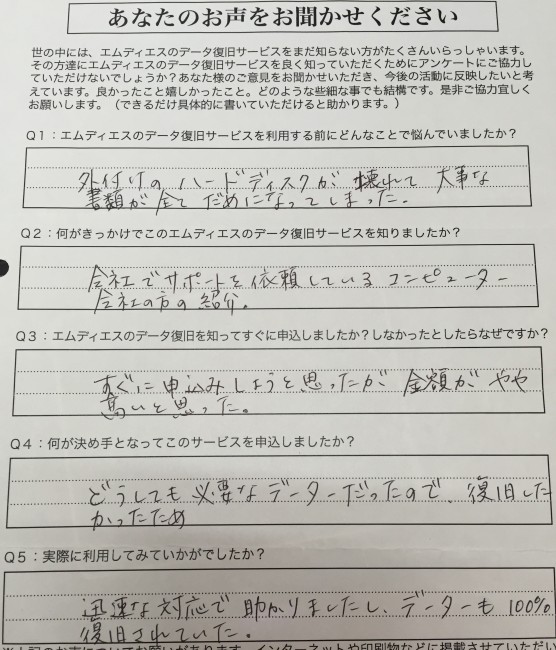 あなたのお声をお聞かせください
世の中には、エムディエスのデータ復旧サービスをまだ知らない方がたくさんいらっしゃいます。
その方達にエムディエスのデータ復旧サービスを良く知っていただくためにアンケートにご協力し
ていただけないでしょうか？あなた様のご意見をお聞かせいただき、今後の活動に反映したいと考
えています。良かったこと嬉しかったこと。どのような些細な事でも結構です。是非ご協力宜しく
お願いします。（できるだけ具体的に書いていただけると助かります。）
Q1：エムディエスのデータ復旧サービスを利用する前にどんなことで悩んでいましたか？
外付けの ハードディスクが 壊れて 大事な
書類が全て だめになってしまった。
Q2：何がきっかけでこのエムディエスのデータ復旧サービスを知りましたか？
会社でサポートを依頼している コンピューター
会社の方の紹介。
Q3：エムディエスのデータ復旧を知ってすぐに申込しましたか？しなかったとしたらなぜですか？
すぐに申込みしようと思ったが 金額が やや
高いと思った。
Q4：何が決め手となってこのサービスを申込しましたか？
どうしても 必要なデーターだったので、復旧した
かったため
Q5：実際に利用してみていかがでしたか？
迅速な対応で助かりましたし、データーも 100%
復旧されていた。
※上記のお声についてお願いがあります。インターネットや印刷物などに掲載させていただい